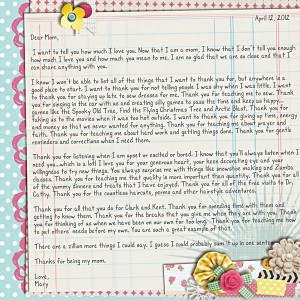 April 12, 2012
Dear Mom,
I want to tell you how much I love you. Now that I am a mom, I know that I don't tell you enough
how much I love you and how much you mean to me. I am so glad that we are so close and that I
can share anything with you.
I know I won't be able to list all of the things that I want to thank you for, but anywhere is a
good place to start. I want to thank you for not telling people I was shy when I was little. I want
to thank you for staying up late to sew dresses for me. Thank you for teaching me to sew. Thank
you for singing in the car with us and creating silly games to pass the time and keep us happy...
games like the Spooky Old Tree, Find the Flying Christmas Tree and Arctic Blast. Thank you for
taking us to the movies when it was too hot outside. I want to thank you for giving us time, energy
and money so that we never wanted for anything. Thank you for teaching me about prayer and
faith. Thank you for teaching me about hard work and getting things done. Thank you for gentle
reminders and corrections when I need them.
Thank you for listening when I am upset or excited or bored. I know that you'll always listen when I
need you...which is a lot! I love you for your generous heart, your keen decorating eye and your
willingness to try new things. You always surprise me with things like snowshoe making and Zumba
classes. Thank you for teaching me that quality is more important than quantity. Thank you for all
of the yummy dinners and treats that I have enjoyed. Thank you for all of the free visits to Dr.
Cathy. Thank you for the countless haircuts, perms and other hairstyle adventures.
Thank you for all that you do for Clark and Kent. Thank you for spending time with them and
getting to know them. Thank you for the breaks that you give me when they are with you. Thank
you for thinking of us when we have been on our own for too long. Thank you for teaching me how
to put others' needs before my own. You are such a great example of that.
There are a zillion more things I could say. I guess I could probably sum it up in one sentence
Thanks for being my mom.
Love,
Mary